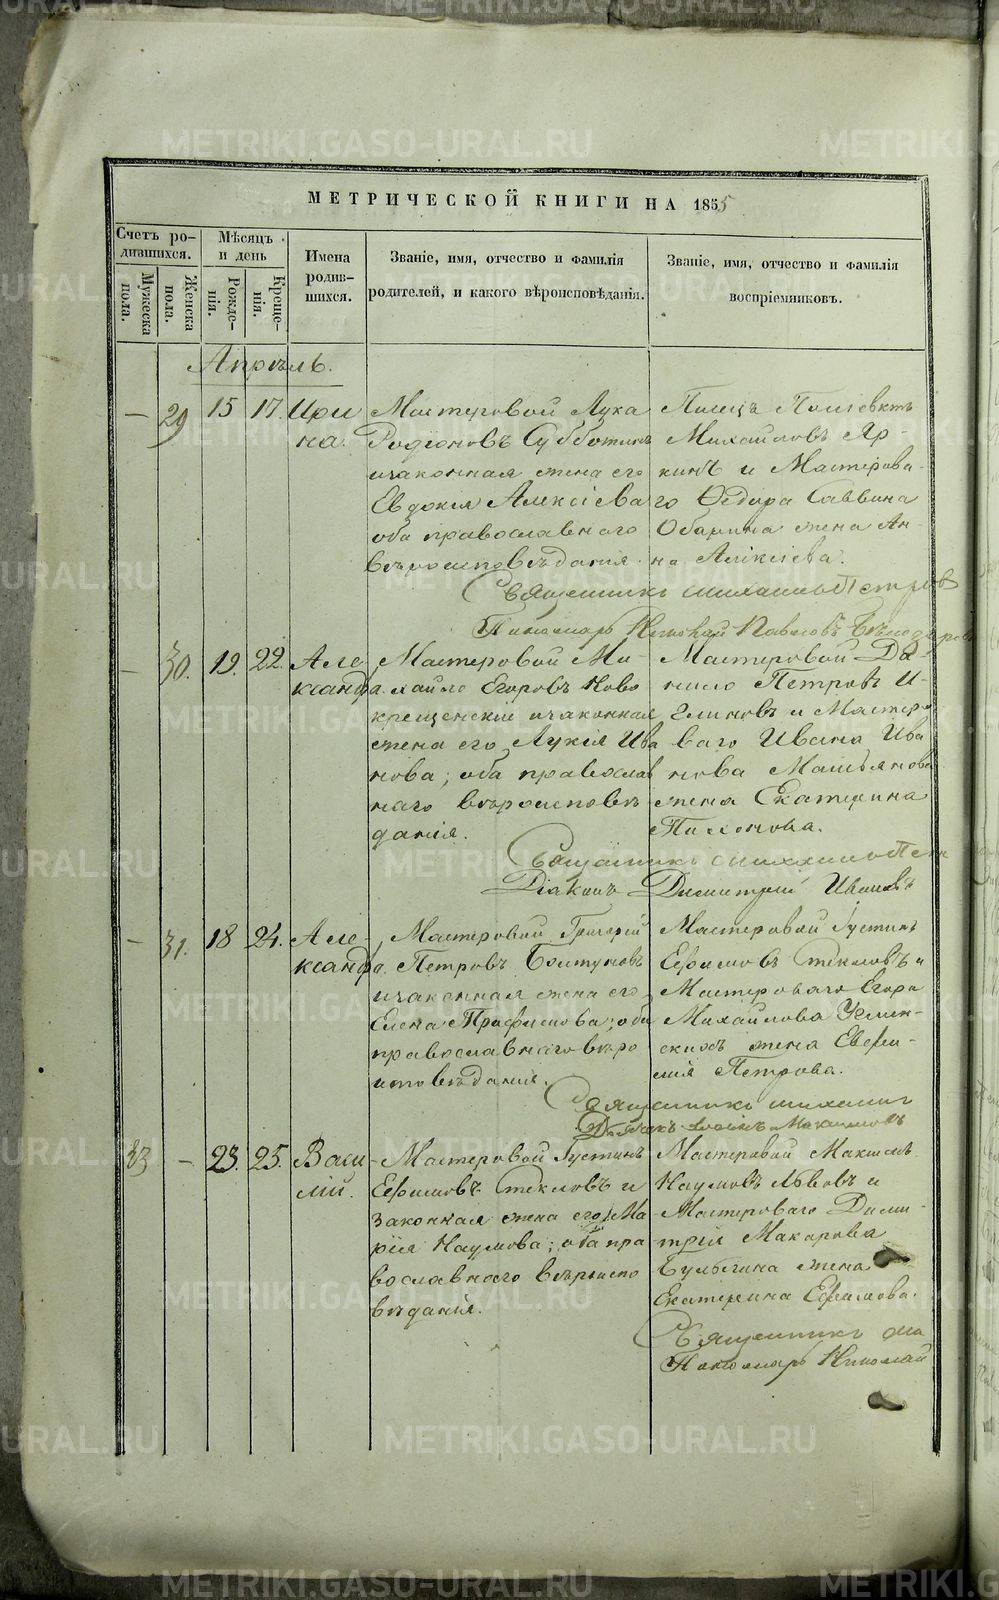 МЕТРИЧЕСКОЙ КНИГИ НА 1855
Счетъ ро-
дившихся.
Мужеска
пола.
Женска
пола.
Мѣсяцъ
и день
Рожде-
нія.
Креще-
нія.
Имена
родив-
шихся.
Званіе, имя, отчество и фамилія
родителей, и какого вѣроисповѣданія.
Званіе, имя, отчество и фамилія
воспріемниковъ.
Апрѣль.
— 29 15 17. Ири
на.
Мастеровой Лука
Родіоновъ Субботинъ
и законная жена его
Евдокія Алексіева
оба православнаго
вѣроисповѣданія.
Писецъ Поліевктъ
Михайловъ Яр-
кинъ и Мастерова-
го Ѳедора Саввина
Обарина жена Ан-
на Алексіева.
Священникъ Михаилъ Петров
Пономарь Николай Павловъ
— 30. 19. 22. Але
ксандра.
Мастеровой Ми-
хайло Егоровъ Ново
крещенскій и законная
жена его Лукія Ива
нова; оба православ
наго вѣроисповѣ
данія.
Мастеровой Да-
нило Петровъ И-
глиновъ и Мастеро
ваго Ивана Ива
нова Мальянова
жена Екатерина
Пилонова.
Священникъ Михаилъ Пет
Діаконъ Димитрій Ивановъ
— 31. 18 24. Але-
ксандра.
Мастеровой Григорій
Петровъ Болтуновъ
и законная жена его
Елена Трофимова; оба
православнаго вѣро
исповѣданія.
Мастеровой Густинъ
Ефимовъ Стекловъ и
Мастероваго Егора
Михайлова Успен-
скихъ жена Евфи-
мія Петрова.
Священникъ Михаилъ
33 — 23. 25. Васи
лій.
Мастеровой Густинъ
Ефимовъ Стекловъ и
законная жена его Ма
рія Наумова; оба пра
вославнаго вѣроиспо
вѣданія.
Мастеровой Максимъ
Наумовъ Львовъ и
Мастероваго Дими-
трія Макарова
Булыгина жена
Екатерина Ефимова.
Священникъ Ми
Пономарь Николай
METRIKI.GASO-URAL.RU